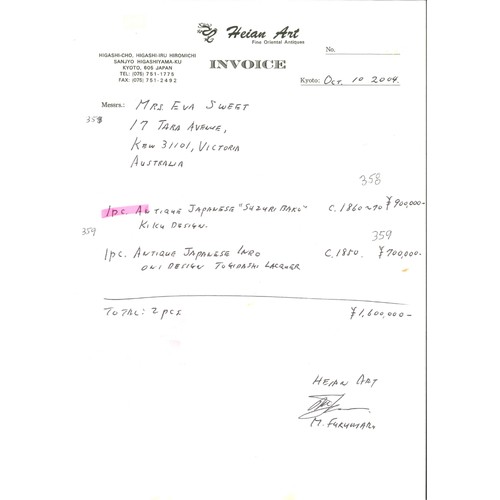 Heian Art
Fine Oriental Antiques
HIGASHI-CHO, HIGASHI-IRU HIROMICHI
SANJYO HIGASHIYAMA-KU
KYOTO, 606 JAPAN
TEL: (075) 751-1775
FAX: (075) 751-2492
No.
INVOICE
Kyoto: Oct. 10 2004.
Messrs.: Mrs. Eva Sweet
358
17 Tara Avenue,
Kew 31101, Victoria
Australia
358
1pc. Antique Japanese "Suzuribako" C. 1860~70 ¥900,000-
Kiku Design.
359
359
1pc. Antique Japanese Inro C. 1850. ¥700,000-
Oni Design Togidashi Lacquer
Total: 2 pcs ¥1,600,000-
Heian Art
M. Furumari